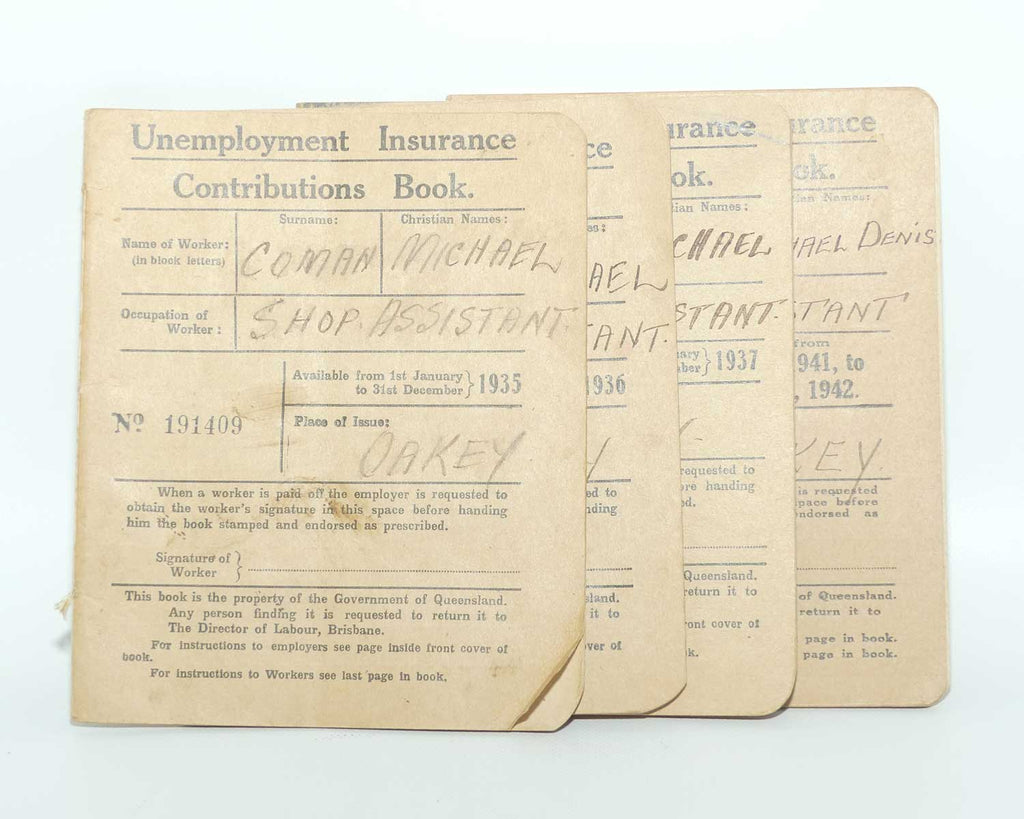 Unemployment Insurance
Contributions Book.
Surname: Christian Names:
Name of Worker: COMAN MICHAEL
(in block letters)
Occupation of Worker: SHOP. ASSISTANT.
Available from 1st January
to 31st December } 1935
Nº 191409
Place of Issue:
OAKEY
When a worker is paid off the employer is requested to
obtain the worker's signature in this space before handing
him the book stamped and endorsed as prescribed.
Signature of
Worker }
This book is the property of the Government of Queensland.
Any person finding it is requested to return it to
The Director of Labour, Brisbane.
For instructions to employers see page inside front cover of
book.
For instructions to Workers see last page in book.
ce
es:
AEL
TANT.
1936
Y
ed to
nding
sland.
it to
ver of
urance
ok.
tian Names:
CHAEL
STANT.
ary
ber } 1937
requested to
ore handing
d.
Queensland.
return it to
ront cover of
k.
urance
ok.
tian Names:
HAEL DENIS
STANT
from
941, to
, 1942.
KEY.
is requested
pace before
endorsed as
of Queensland.
return it to
page in book.
page in book.